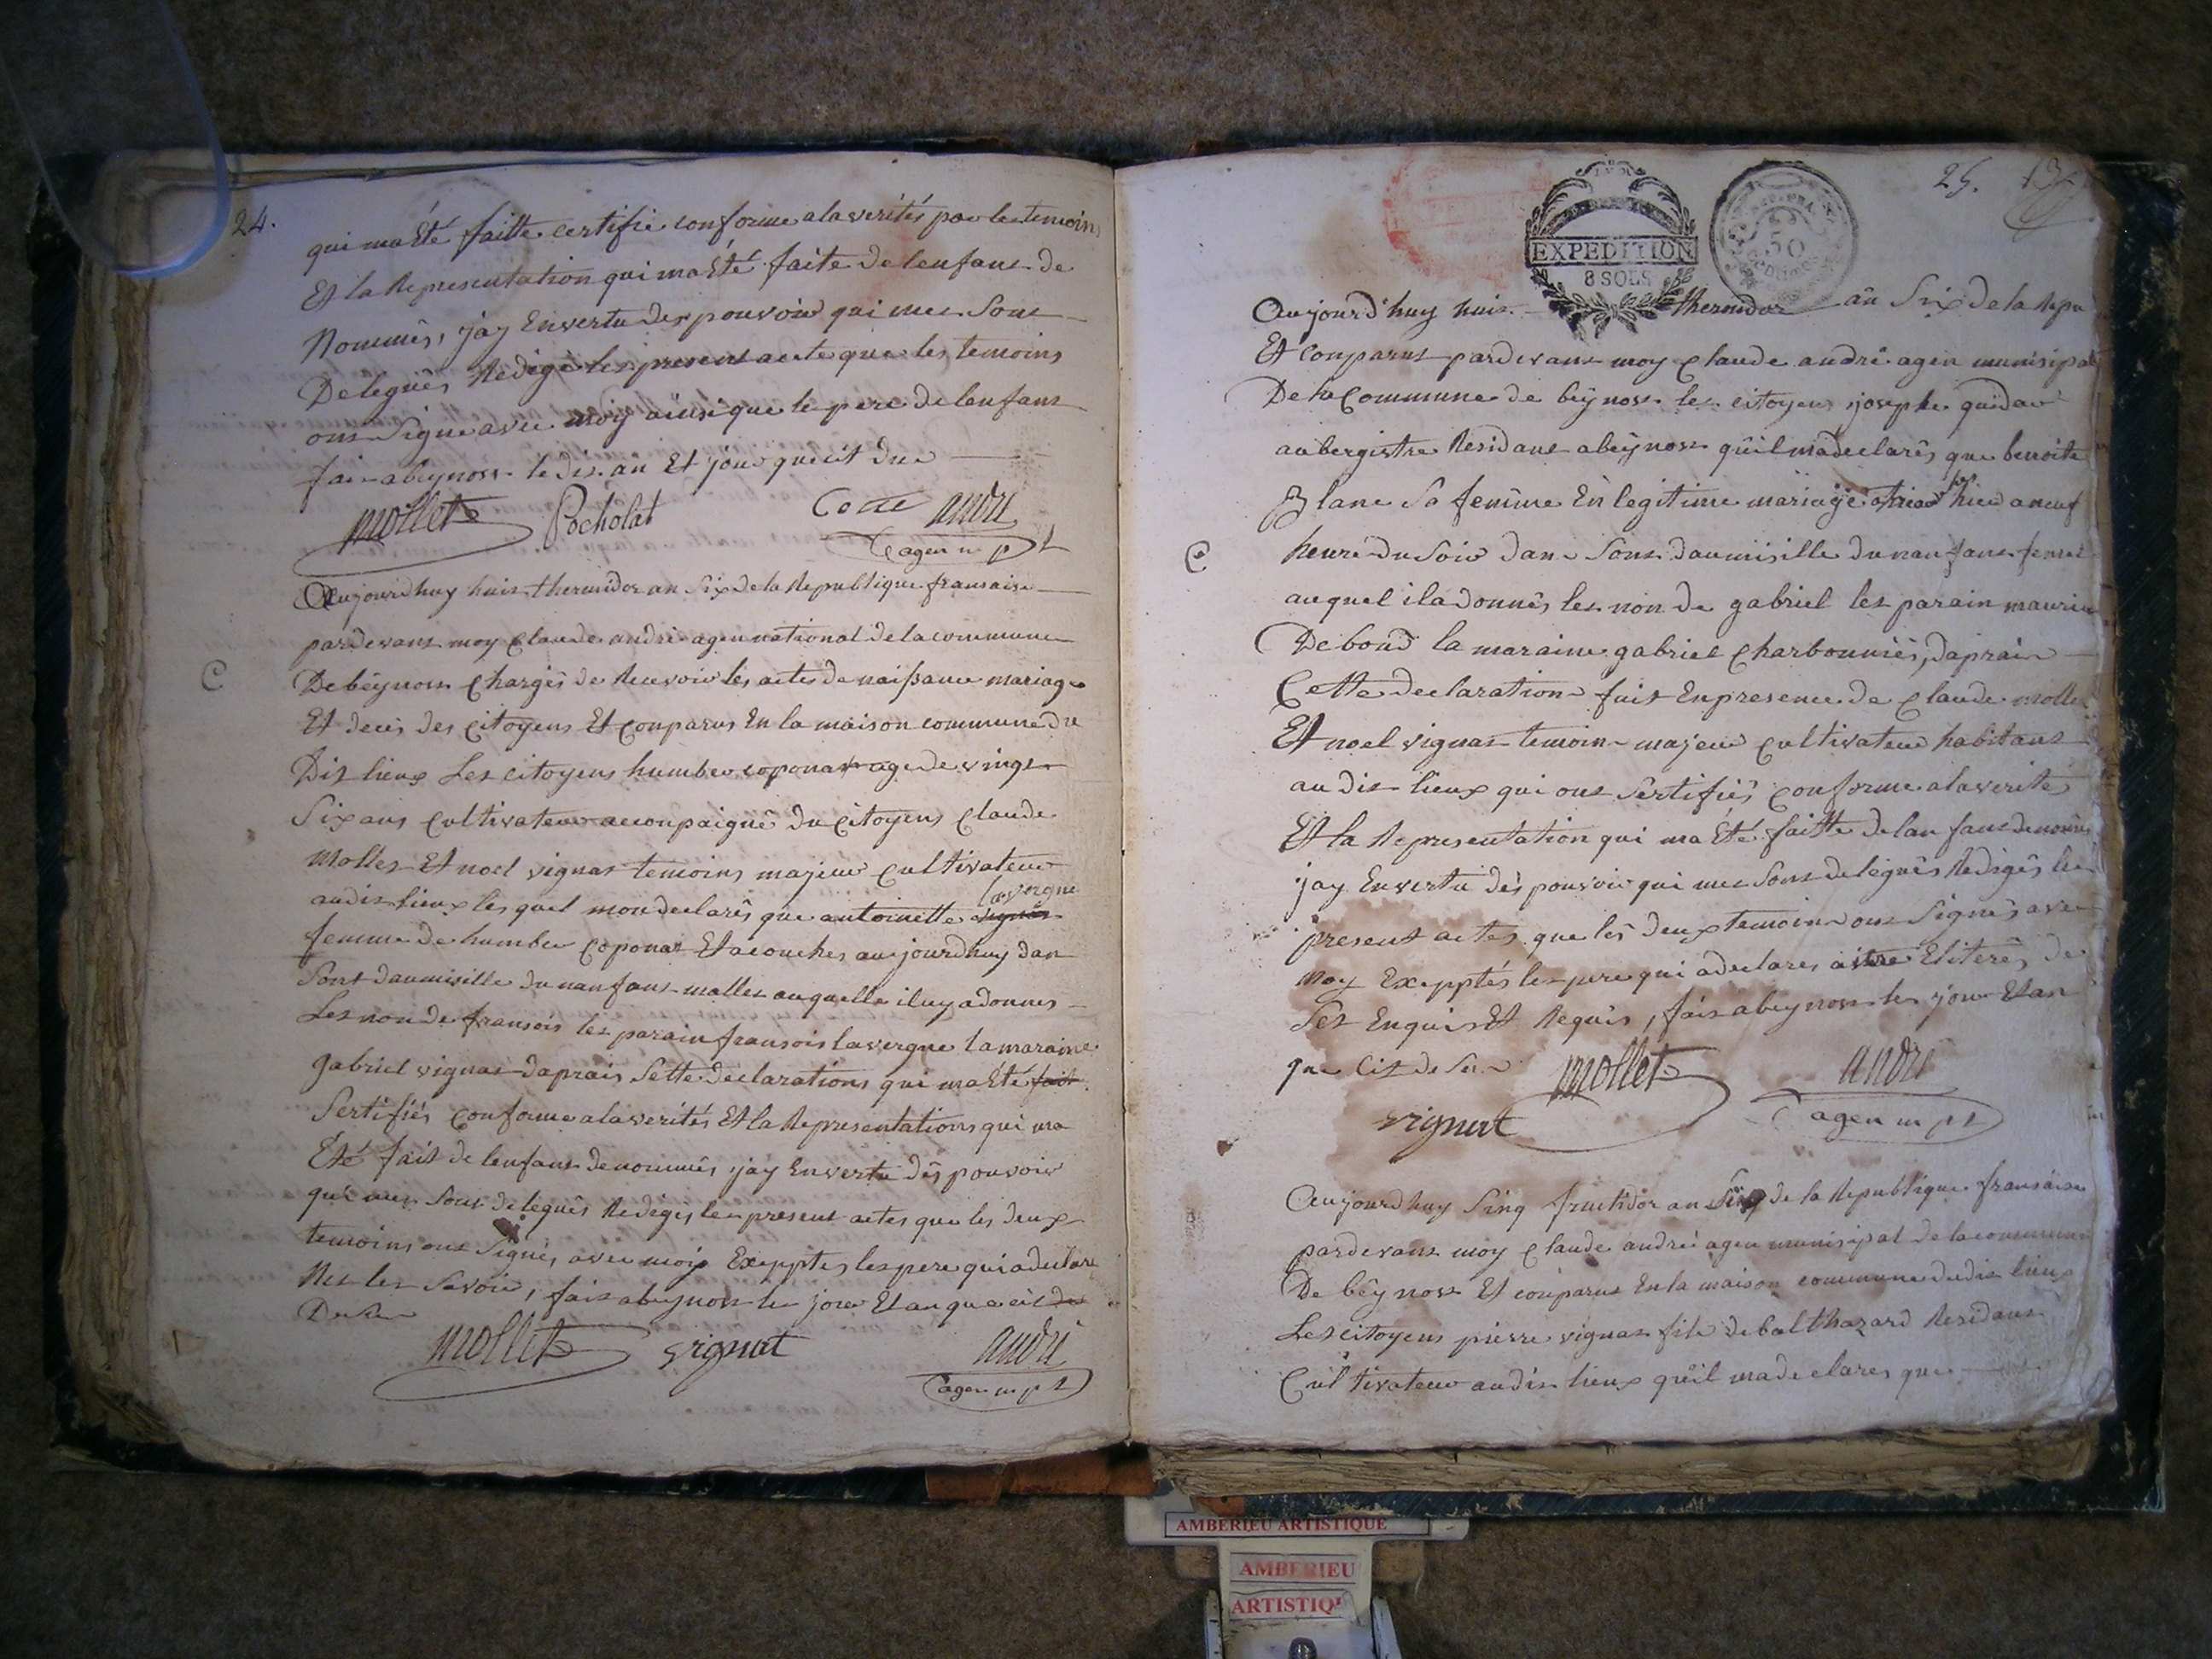 24.
qui ma Eté faitte certifie conforme a la verités par les temoins
Et la Representation qui ma Eté faite de lenfant de
Nommés, jay En vertu des pouvoir qui mes sont
Delegués Redigé les present acte que les temoins
ont signe avec moy ainsi que le pere de lenfant
fai abeynost le dis an Et jour que cit due
mollet Pocholat Cotte andré
agen mpl
Aujourdhuy huit thermidor an six de la Republique fransaise
pardevant moy Claude andré agen national de la commune
C
De béynost Chargés de Recevoir les actes de naissance mariage
Et decés des Citoyens Et Conparus En la maison commune du
Dit lieux Les citoyens humber coponat age de vingt
Six ans Cultivateur acconpaigné du Citoyens Claude
Mollet Et noel vignat temoins majeur Cultivateur
au dis lieux les quel mon declarés que antoinette lavergne
femme de humber Coponat Et acouchés aujourdhuy dan
sont daumisille du nanfant malles auquelle il uy a donnes
Les non de fransois les parain fransois lavergne la maraine
gabriel vignat daprais Sette declarations qui ma Eté fait
Sertifiés Conforme a la verités Et la Representations qui ma
Eté fait de lenfant denommés, jay En vertu dés pouvoir
qui mes sont delegués Rediges les present actes que les deux
temoins ont signés avec moy Exepptes les pere qui a declare
Nes les savoir, fait abeynost les jour Et an que cit de
Dessu
mollet vignat andré
agen mpl
25.
EXPEDITION
8 SOLS
Aujourdhuy huit thermidor an Six de la Repu
Et Conparut pardevant moy Claude andré agen munisipal
De la Commune de béynost les citoyen josephe guidar
aubergistre Residant abéynost quil ma declarés que benoite
Blanc Sa femme En legitime mariage hier a neuf
C
heure du Soir dans Sont daumisille du nanfant femel
auquel il a donnés les non de gabriel les parain mauris
De bond la maraine gabriel Charbonniés, daprais
Cette declaration fait En presence de Claude mollet
Et noel vignat temoin majeur Cultivateur habitant
au dit lieux qui ont Sertifiés Conforme a la verités
Et la Representation qui ma Eté faitte de lanfant denomés
jay En vertu dés pouvoir qui mes sont delegués Redigés les
present actes que lés deux temoin ont Signés avec
moy Exepptés les pere qui a declares Eliterés de
Ses Enquis Et Requis, fait abeynost les jour Et an
que Cit de Su
mollet andré
vignat agen mpl
Aujourdhuy Sinq fructidor an Six de la Republique fransaise
pardevant moy Claude andré agen munisipal de la commune
De béynost Et conparut En la maison commune du dit lieux
Les citoyens pierre vignat fils de balthazard Residant
Cultivateur au dit lieux quil ma declares que
AMBERIEU ARTISTIQUE
AMBERIEU
ARTISTIQU